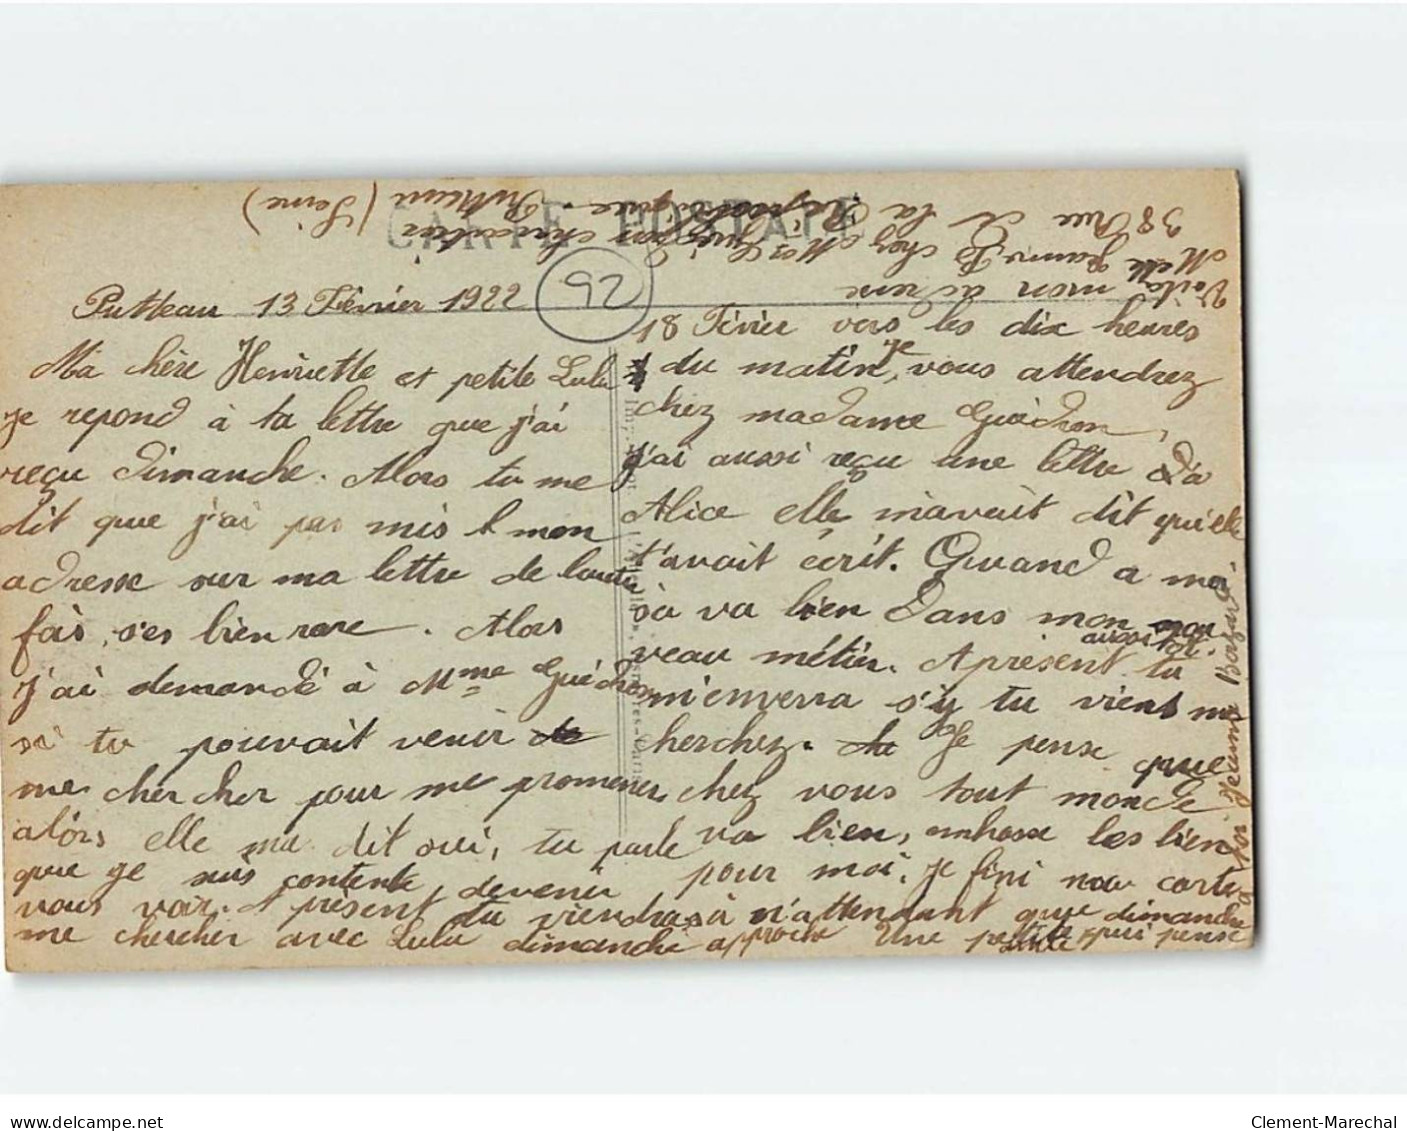 CARTE POSTALE
92
Putteau 13 Février 1922
Ma chère Henriette et petite Lulu
je repond à ta lettre que j'ai
reçu dimanche. Alors tu me
dit que j'ai pas mis mon
adresse sur ma lettre de lautre
fois, s'es bien rare. Alors
j'ai demandé à Mme Guédron
si tu pouvait venir de
me chercher pour me promener
alors elle ma dit oui, tu parle
que je suis contente, devenir
vous voir. A présent tu viendras
me chercher avec Lulu dimanche
18 Février vers les dix heures
du matin, je vous attendrez
chez madame Guédron,
j'ai aussi reçu une lettre d'a
Alice elle m'avait dit qu'elle
t'avait écrit. Quand a moi
sa va bien Dans mon nou
veau métier. Apresent tu
aussitôt.
m'enverra s'y tu viens me
cherchez. de Je pense que
chez vous tout monde
va bien, embrasse les bien
pour moi. je fini nou carte
à n'attendant que dimanche
approche Une petite amie qui pense
à toi Jeanne
Voila mon adresse
Melle Jeanne B chez Mme Guédron
38 Rue de la République
Putteau (Seine)
Clement-Marechal
www.delcampe.net